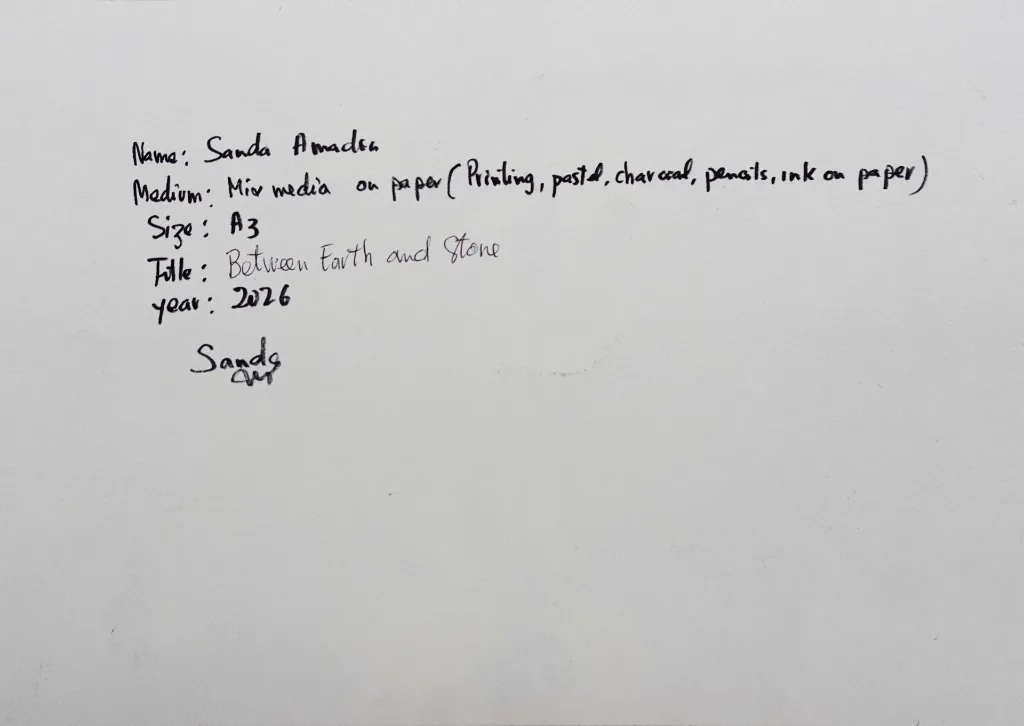 Name: Sanda Amadea
Medium: Mix media on paper (Printing, pastel, charcoal, pencils, ink on paper)
Size: A3
Title: Between Earth and Stone
year: 2026
Sanda